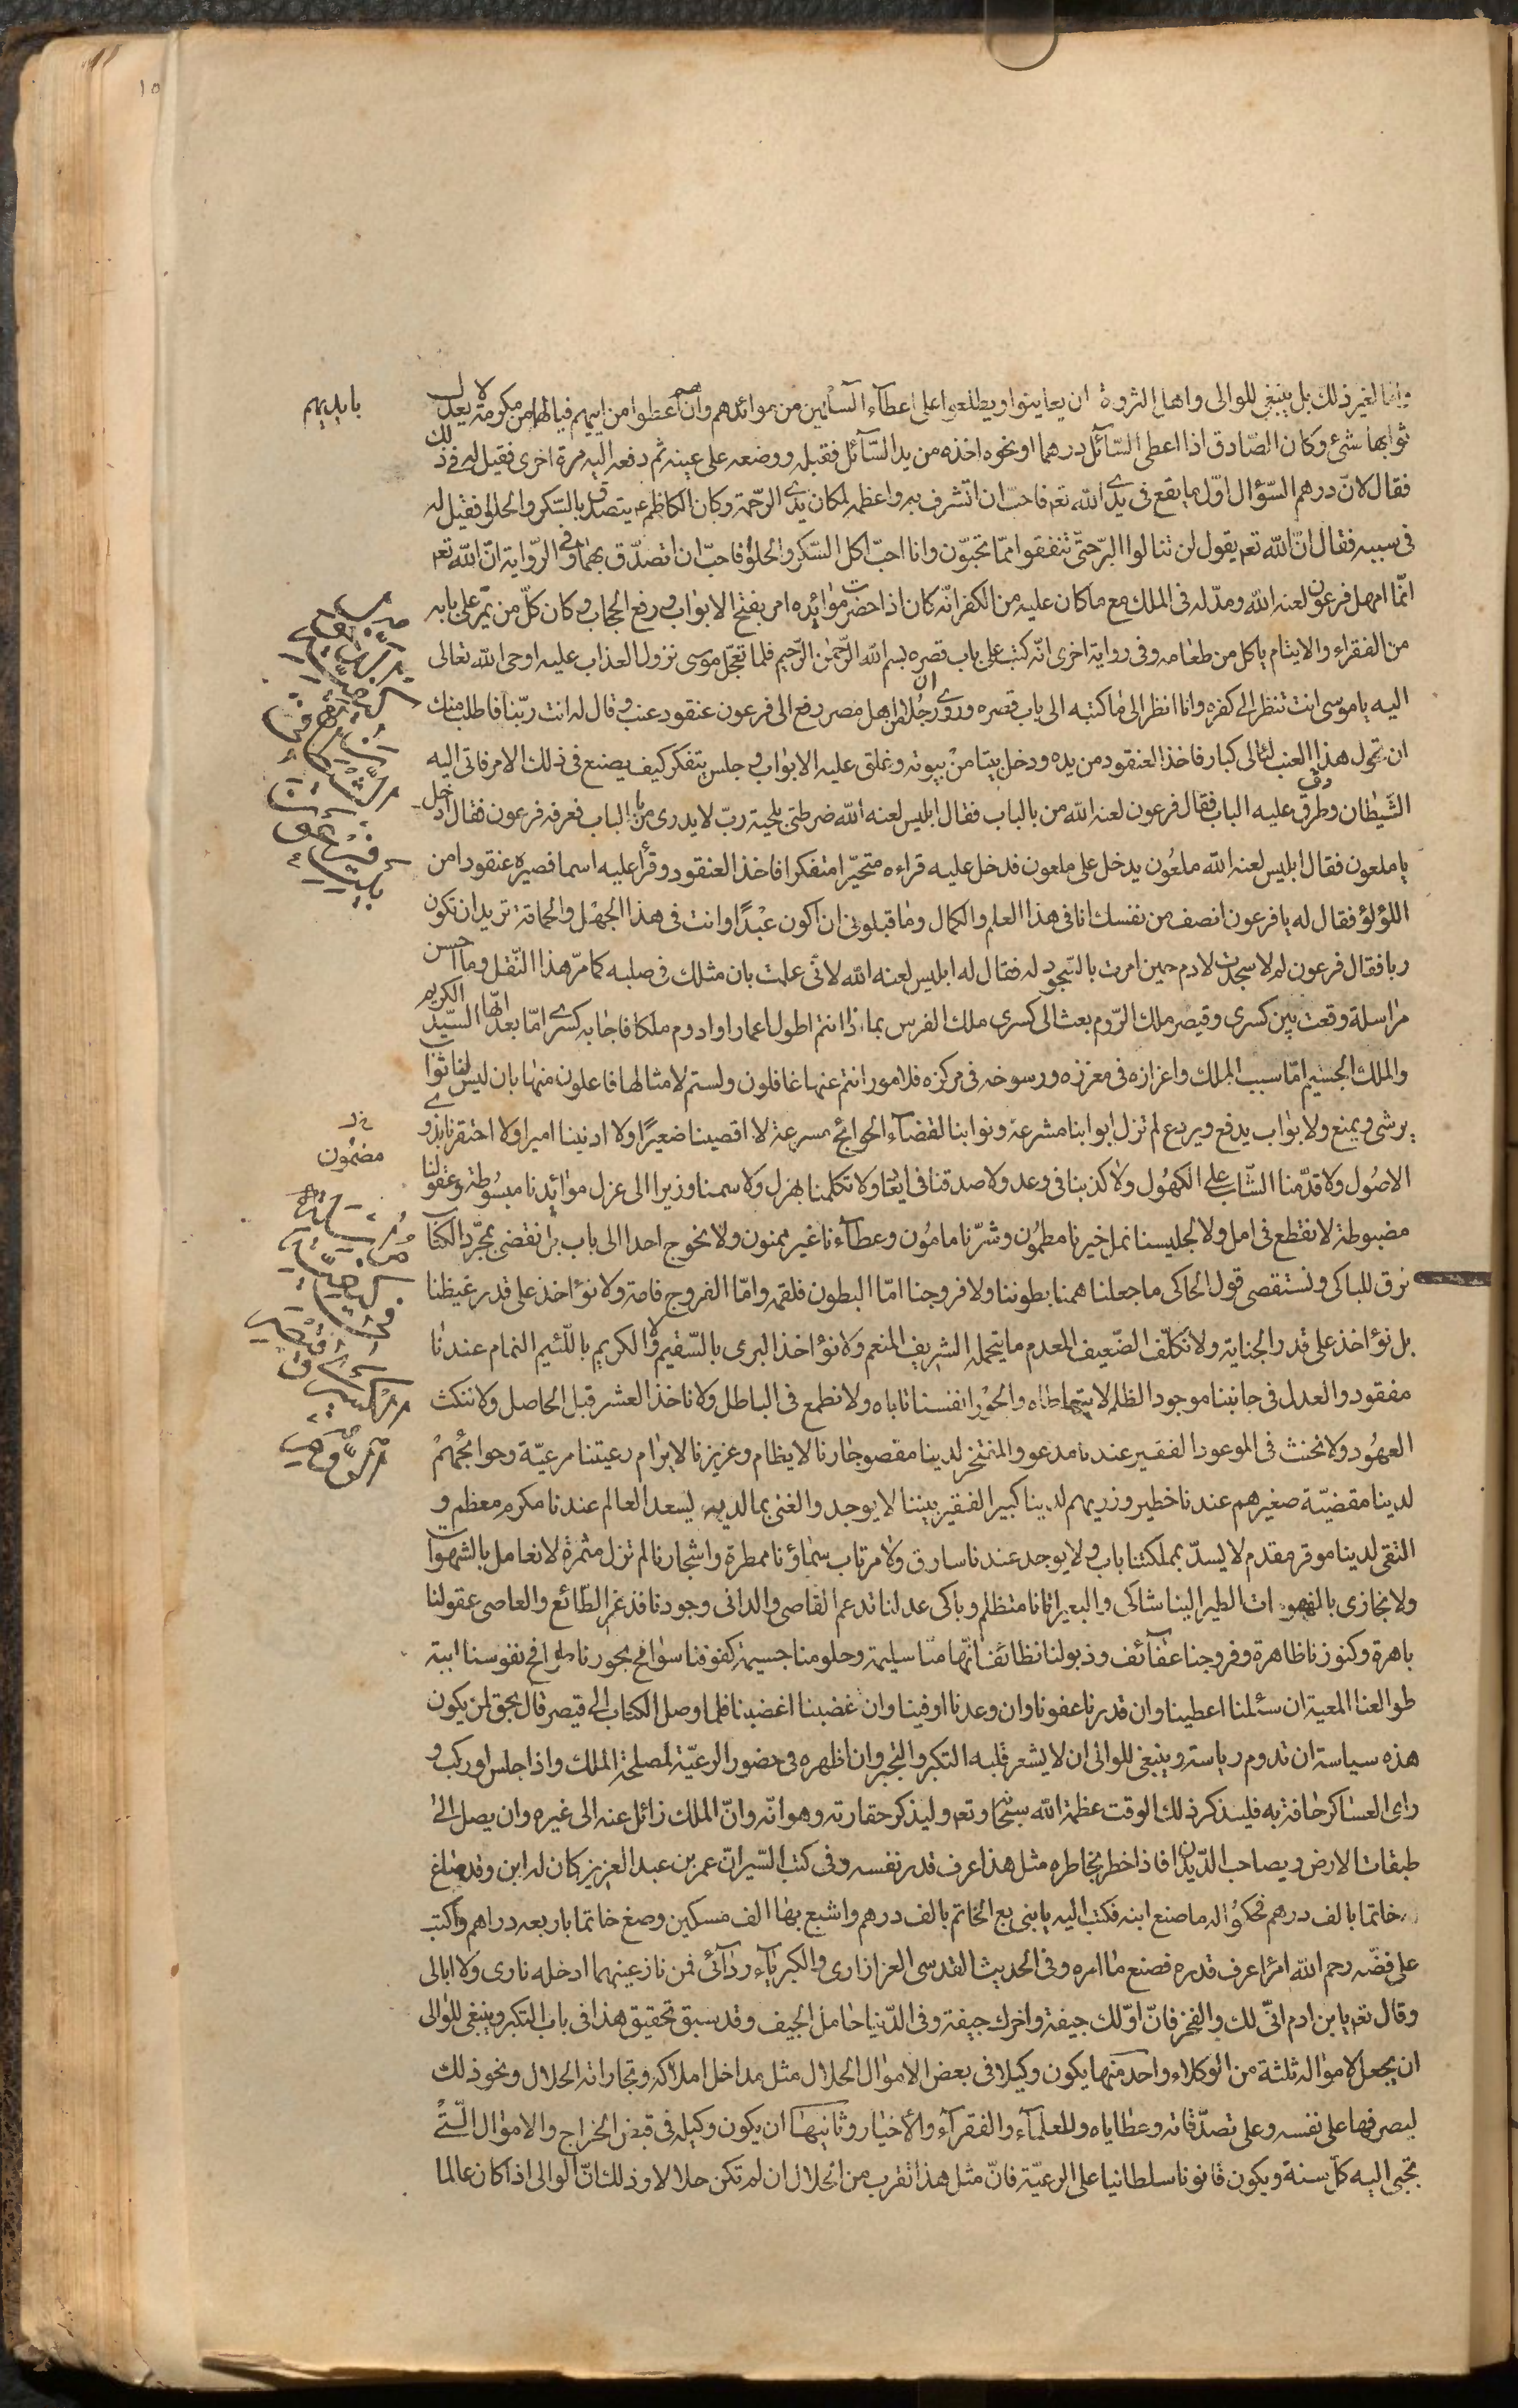 وامّا لغير ذلك بل ينبغى للوالى واهل الثروة ان يعاينوا ويطلعوا على اعطآء السآئلين من موائدهم وان اعطوا من ايديهم فيا لها من مكرمة لا يعدل
بايديهم
ثوابها شئ وكان الصّادق اذا اعطى السّآئل درهما او نحوه اخذه من يد السّآئل فقبله ووضعه على عينه ثم دفعه اليه مرة اخرى فقيل له فى ذلك
فقال لانّ درهم السّؤال اوّل ما يقع فى يدى الله تعم فاحبّ ان اتشرف به واعظمه لمكان يدى الرّحمة وكان الكاظم ع يتصدق بالسّكر والحلوا فقيل له
فى سببه فقال انّ الله تعم يقول لن تنالوا البرّ حتّى تنفقوا ممّا تحبّون وانا احبّ اكل السّكر والحلوا فاحبّ ان اتصدّق بهما وفى الرّواية انّ الله تعم
انّما امهل فرعون لعنه الله ومدّ له فى الملك مع ما كان عليه من الكفر انّه كان اذا حضرت موائده امر بفتح الابواب ورفع الحجاب وكان كلّ من يمّر على بابه
من الفقراء والايتام ياكل من طعامه وفى رواية اخرى انّه كتب على باب قصره بسم الله الرّحمن الرّحيم فلما تعجّل موسى نزول العذاب عليه اوحى الله تعالى
اليه يا موسى انت تنظر الى كفره وانا انظر الى ما كتبه الى باب قصره وروى ان رجلا من اهل مصر رفع الى فرعون عنقود عنب وقال له انت ربّنا فاطلب منك
ان تحول هذا العنب لئالى كبار فاخذ العنقود من يده ودخل بيتا من بيوته وغلق عليه الابواب وجلس يتفكر كيف يصنع فى ذلك الامر فاتى اليه
الشّيطان وطرق عليه الباب فقال فرعون لعنه الله من بالباب فقال ابليس لعنه الله ضرطتى بلحية ربّ لا يدرى من بالباب فعرفه فرعون فقال ادخل
يا ملعون فقال ابليس لعنه الله ملعون يدخل على ملعون فدخل عليه فراءه متحيّرا متفكرا فاخذ العنقود وقرأ عليه اسما فصيره عنقودا من
اللؤلؤ فقال له يا فرعون انصف من نفسك انا فى هذا العلم والكمال وما قبلونى ان اكون عبدًا وانت فى هذا الجهل والحماقة تريد ان تكون
ربا فقال فرعون لم لا سجدت لادم حين امرت بالسّجود له فقال له ابليس لعنه الله لانّى علمت بان مثلك فى صلبه كما مرّ هذا النّقل وما احسن
مراسلة وقعت بين كسرى وقيصر ملك الرّوم بعث الى كسرى ملك الفرس بماذا انتم اطول اعمارا وادوم ملكا فاجابه كسرى امّا بعد ايّها السّيّد الكريم
والملك الجسيم امّا سبب الملك واعزازه فى معززه ورسوخه فى مركزه فلامور انتم عنها غافلون ولستم لامثالها فاعلون منها بان ليس لنا نواب
يرشى ويمنع ولا بواب يدفع ويردع لم تزل ابوابنا مشرعة ونوابنا لقضآء الحوائج مسرعة لا اقصينا ضعيرًا ولا ادنينا اميرا ولا احتقرنا بذوى
الاصُول ولا قدّمنا الشّاب على الكهُول ولا كذبنا فى وعد ولا صدقنا فى ايعاد ولا تكلمنا بهزل ولا سمنا وزيرا الى عزل موائدنا مبسُوطة وعقولنا
مضبوطة لا نقطع فى امل ولا لجليسنا نمل خيرنا مطمُون وشرّنا مامُون وعطآءنا غير ممنون ولا نحوج احدا الى باب بل نقضى بمجرّد الكتاب
نرق للباكى ونستقصى قول الحاكى ما جعلنا همنا بطوننا ولا فروجنا امّا البطون فلقمه وامّا الفروج فامة ولا نؤاخذ على قدر غيظنا
بل نؤاخذ على قدر الجناية ولا نكلّف الضّعيف المعدم ما يتحمله الشريف المنعم ولا نؤاخذ البرى بالسّقيم ولا الكريم باللّئيم النمام عندنا
مفقود والعدل فى جانبنا موجود الظلم لا نتعاطاه والجور انفسنا تاباه ولا نطمع فى الباطل ولا ناخذ العشر قبل الحاصل ولا ننكث
العهُود ولا نحنث فى الموعود الفقير عندنا مدعو والمتخر لدينا مقصو جارنا لا يظام وعزيزنا لا يرام رعيتنا مرعيّة وحوائجُهمْ
لدينا مقضيّة صغيرهم عندنا خطير وزريهم لدينا كبير الفقير بيننا لا يوجد والغنى بما لديه يسعد العالم عندنا مكرم معظم و
التقى لدينا موقر مقدم لا يسدّ بمملكتنا باب ولا يوجد عندنا سارق ولا مرتاب سماؤنا ممطرة واشجارنا لم تزل مثمرة لا نعامل بالشهوات
ولا نجازى بالهفوات الطير الينا شاكى والبعير اتانا متظلم وباكى عدلنا تدعم القاصى والدانى وجودنا قد غمر الطّائع والعاصى عقولنا
باهرة وكنوزنا ظاهرة وفروجنا عفآئف وذيولنا نظائف افهامنا سليمة وحلومنا جسيمة كفوفنا سوافح بحورنا طوافح نفوسنا ابية
طوالعنا المعية ان سئلنا اعطينا وان قدرنا عفونا وان وعدنا اوفينا وان غضبنا اغضبنا فلما وصل الكتاب الى قيصر قال يحق لمن يكون
هذه سياسة ان تدوم رياسته وينبغى للوالى ان لا يشعر قلبه التكبر والتجبر وان اظهره فى حضور الرعيّة لمصلحة الملك واذا جلس او ركب و
راى العساكر حافة به فليذكر ذلك الوقت عظمة الله سبحانه وتعم وليذكر حقارته وهوانه وانّ الملك زائل عنه الى غيره وان يصل الى
طبقات الارض ويصاحب الدّيدان فاذا خطر بخاطره مثل هذا عرف قدر نفسه وفى كتب السّير انّ عمر بن عبد العزيز كان له ابن وقد صاغ
خاتما بالف درهم فحكوا له ما صنع ابنه فكتب اليه يا بنى بع الخاتم بالف درهم واشبع بها الف مسكين وصغ خاتما باربعه دراهم واكتب
على فضّه رحم الله امرًا عرف قدره فصنع ما امره وفى الحديث القدسى العز ازارى والكبريآء ردآئى فمن نازعنيهما ادخله نارى ولا ابالى
وقال تعم يا بن ادم انّى لك والفخر فانّ اوّلك جيفة واخرك جيفة وفى الدّنيا حامل الجيف وقد سبق تحقيق هذا فى باب التكبر وينبغى للوالى
ان يجعل لامواله ثلثة من الوكلاء واحد منها يكون وكيلا فى بعض الاموال الحلال مثل مداخل املاكه وتجاراته الحلال ونحو ذلك
ليصرفها على نفسه وعلى تصدّقاته وعطاياه وللعلمآء والفقرآء والأخيار وثانيهما ان يكون وكيله فى قبض الخراج والاموال الّتى
تجبى اليه كلّ سنة ويكون قانونا سلطانيا على الرعيّة فانّ مثل هذا تقرب من الحلال ان لم تكن حلالا وذلك انّ الوالى اذا كان عالما
مضمون